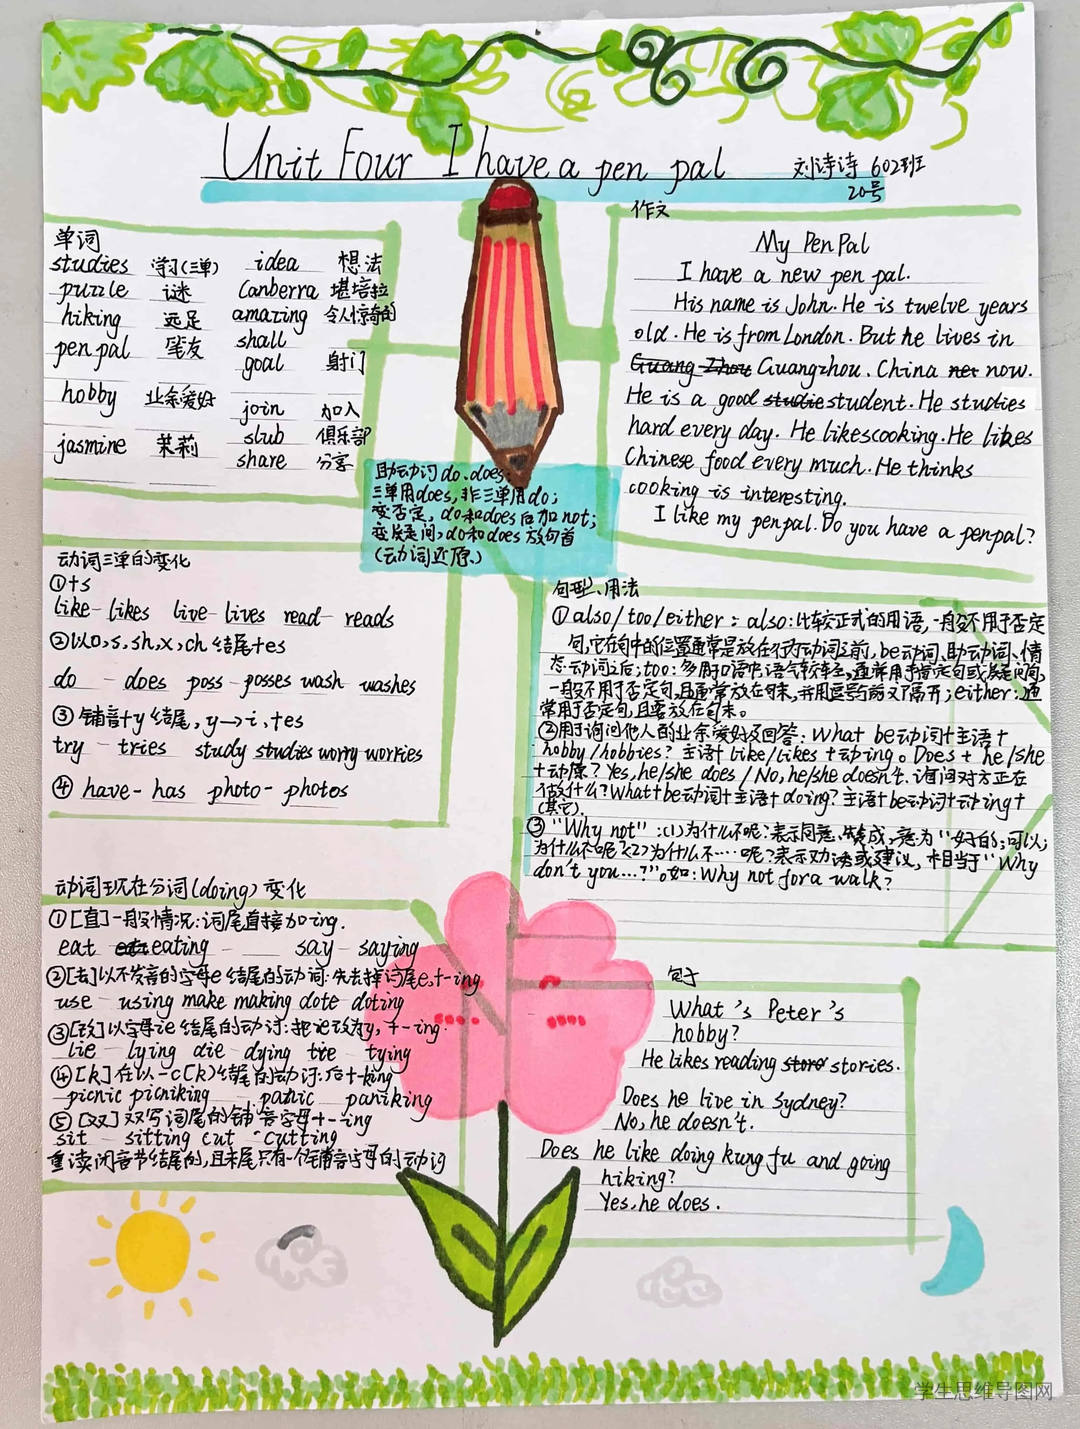 Unit Four I have a pen pal
刘诗诗 602班
20号
单词
studies 学习(三单) idea 想法
puzzle 谜 Canberra 堪培拉
hiking 远足 amazing 令人惊奇的
pen pal 笔友 shall
goal 射门
hobby 业余爱好
join 加入
jasmine 茉莉 slub 俱乐部
share 分享
助动词do、does:
三单用does,非三单用do;
变否定,do和does后加not;
变疑问,do和does放句首
(动词还原.)
作文
My Pen Pal
I have a new pen pal.
His name is John. He is twelve years
old. He is from London. But he lives in
Guang Zhou Guangzhou. China not now.
He is a good studie student. He studies
hard every day. He likes cooking. He likes
Chinese food every much. He thinks
cooking is interesting.
I like my penpal. Do you have a penpal?
动词三单的变化
①+s
like-likes live-lives read-reads
②以o,s,sh,x,ch结尾+es
do - does poss-posses wash washes
③辅音+y结尾,y→i,+es
try - tries study studies worry worries
④have-has photo-photos
句型、用法
①also/too/either:also:比较正式的用语,一般不用于否定
句,它在句中的位置通常是放在行为动词之前,be动词、助动词、情
态动词之后;too:多用口语中,语气较轻,通常用于肯定句或疑问,
一般不用于否定句,且通常放在句末,并用逗号与前文隔开;either:通
常用于否定句,且要放在句末。
②用于询问他人的业余爱好及回答:What be动词+主语+
hobby/hobbies? 主语+like/likes+动ing。Does+he/she
+动原? Yes,he/she does/No,he/she doesn't. 询问对方正在
做什么?What+be动词+主语+doing? 主语+be动词+动ing+
(其它).
③"Why not":(1)为什么不呢?表示同意、赞成,意为"好的;可以;
为什么不呢"<2>为什么不……呢?表示劝诱或建议,相当于"Why
don't you...?"。如:Why not for a walk?
动词现在分词(doing)变化
①[直]一般情况:词尾直接加ing.
eat eating say - saying
②[去]以不发音的字母e结尾的动词:先去掉词尾e,+-ing
use - using make making dote doting
③[改]以字母ie结尾的动词:把ie改为y,+-ing.
lie - lying die-dying tie - tying
④[k]在以-c(k)结尾的动词:后+-king
picnic picniking panic paniking
⑤[双]双写词尾的辅音字母+-ing
sit - sitting cut - cutting
重读闭音节结尾的,且末尾只有一个辅音字母的动词
句子
What 's Peter 's
hobby?
He likes reading store stories.
Does he live in Sydney?
No, he doesn't.
Does he like doing kung fu and going
hiking?
Yes, he does.
学生思维导图网